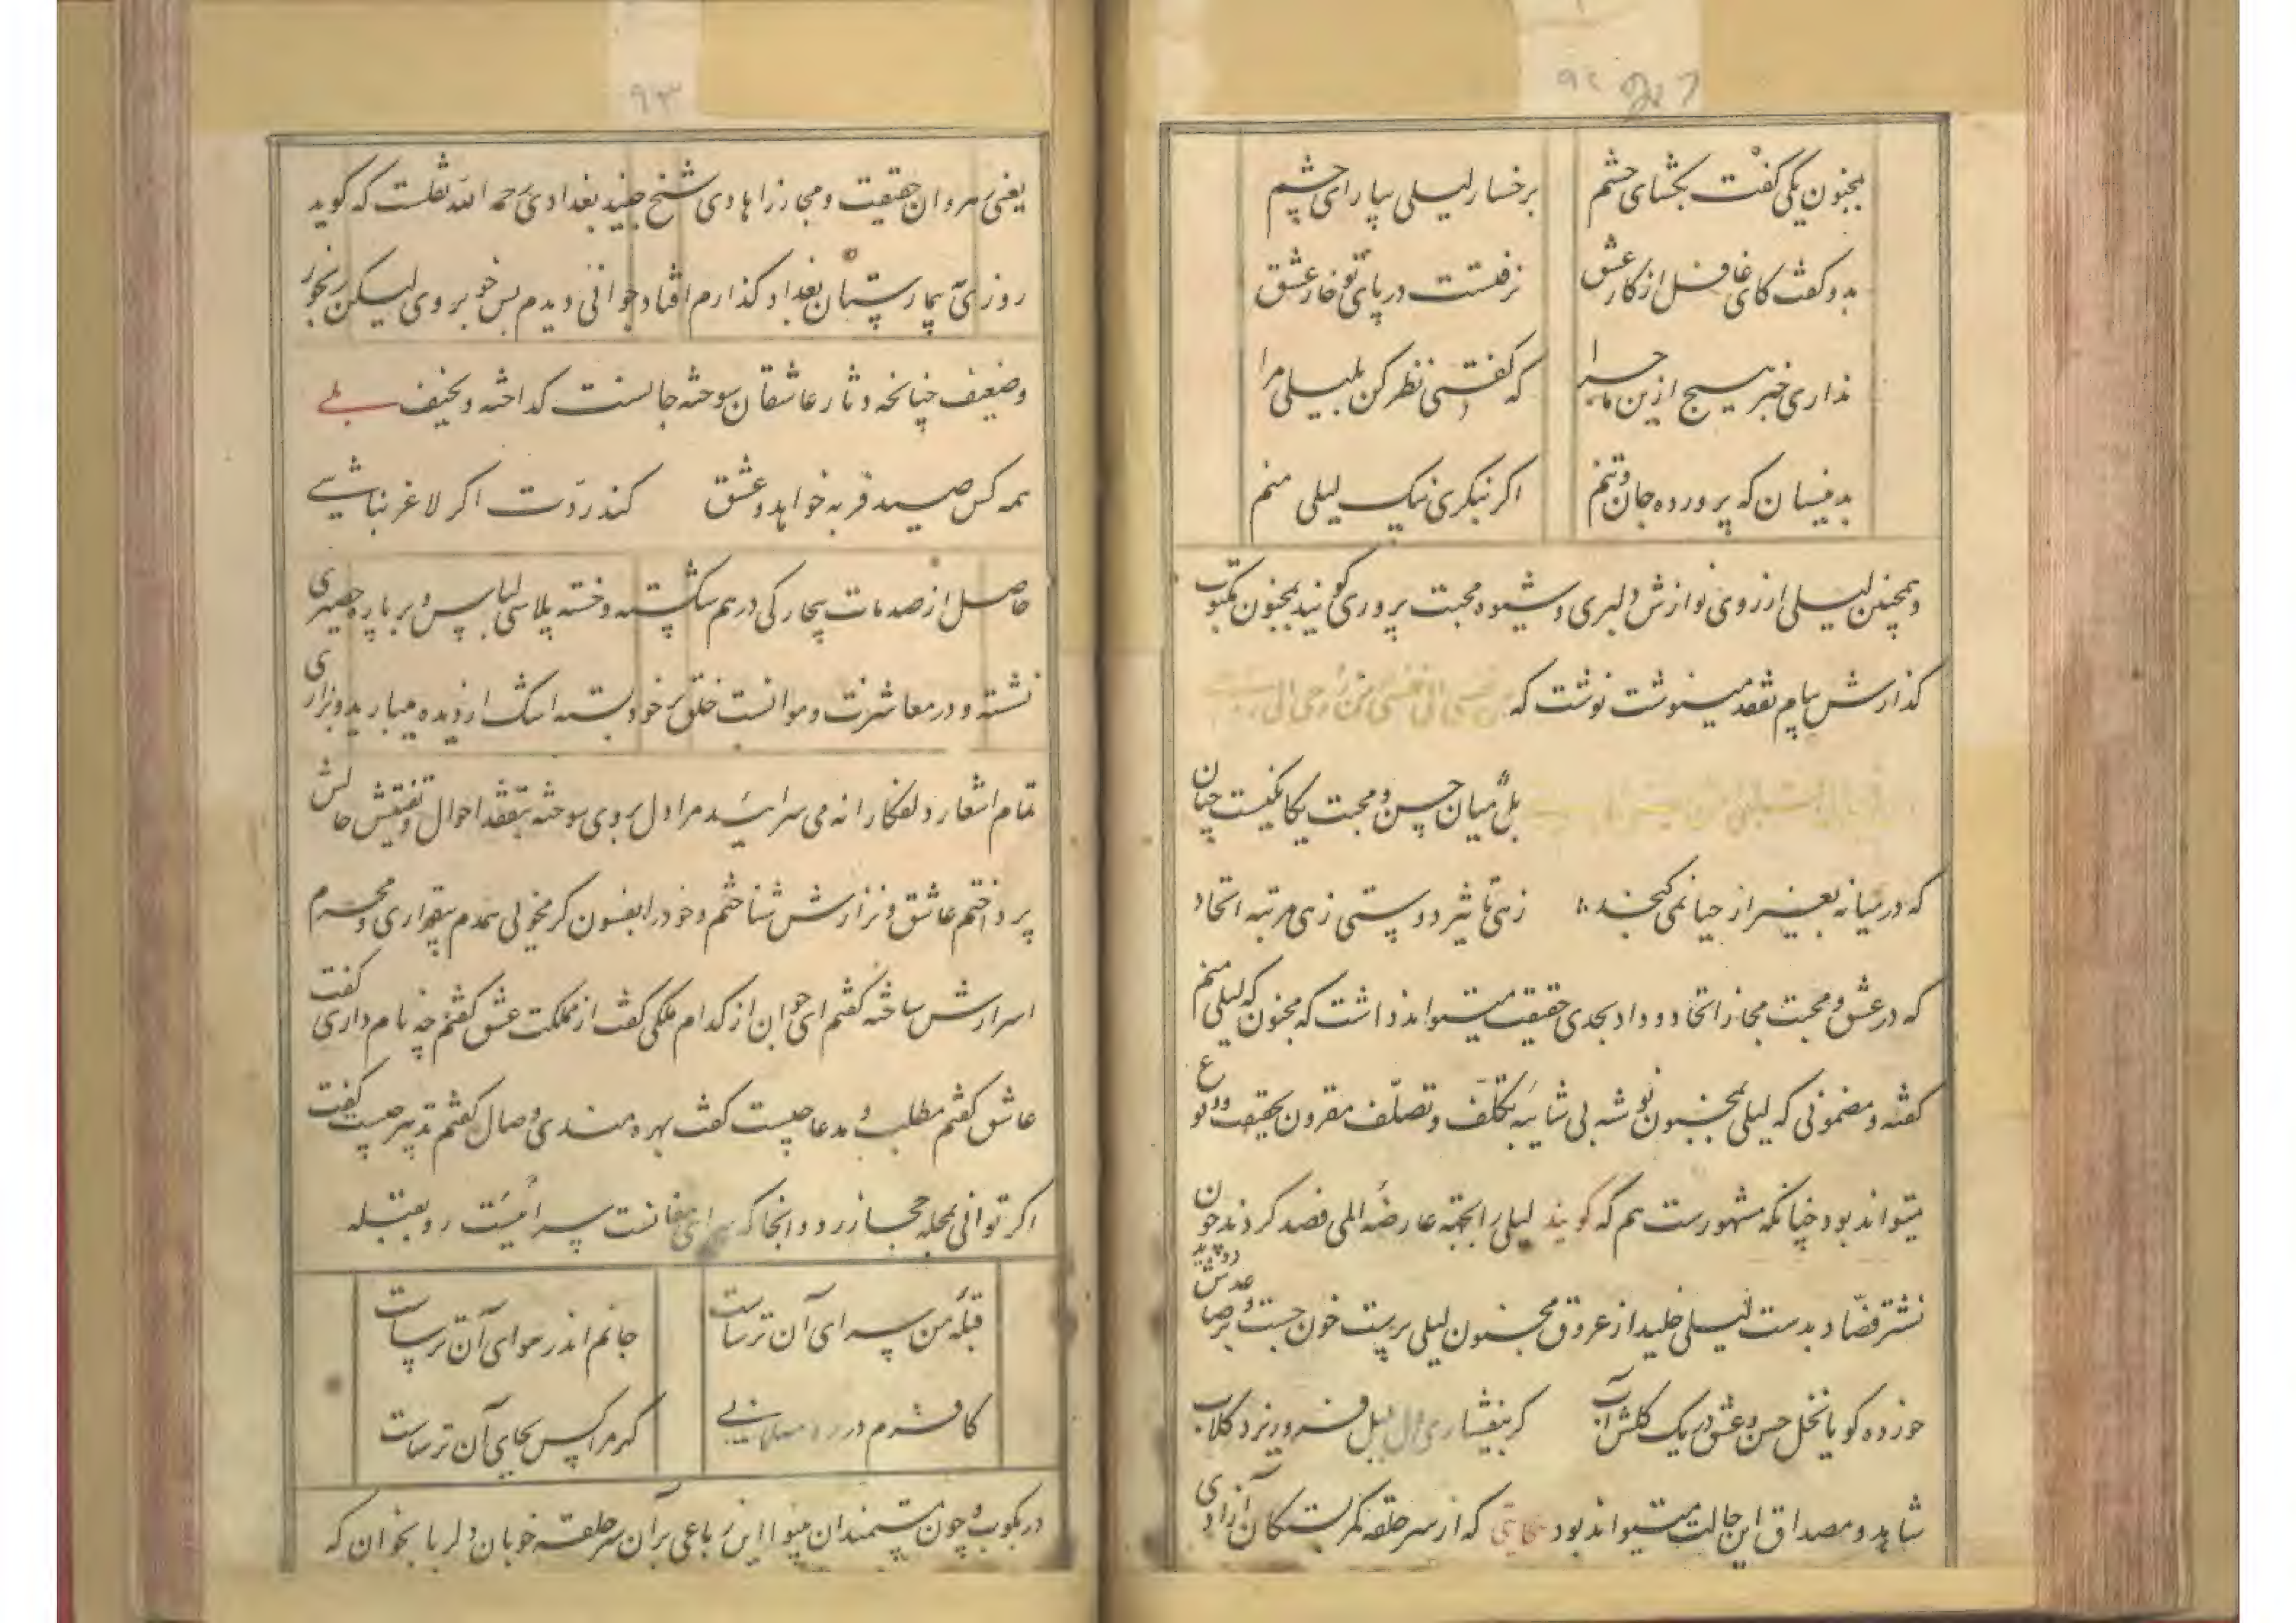 ۹۲
بمجنون یکی گفت بگشای چشم
برخسار لیلی بیارای چشم
بدو گفت کای غافل از کار عشق
نرفتست در پای تو خار عشق
نداری خبر هیچ ازین ماجرا
که گفتی نظر کن بلیلی مرا
بدینسان که پرورده جان و تنم
اگر بنگری نیک لیلی منم
وهمچنین لیلی از روی نوازش دلبری و شیوه محبت پروری گویند بمجنون مکتوب
گذارش پیام تفقد مینوشت نوشت که
بل میان حسن و محبت یکانگیست چنان
که در میانه بغیر از حیا نمی کنجد
زهی تاثیر دوستی زهی مرتبه اتحاد
که در عشق و محبت مجاز اتحاد و وداد بحدی حقیقت میتواند داشت که مجنون که لیلی منم
گفته و مضمونی که لیلی بمجنون نوشته بی شایبه تکلف و تصلف مقرون بحقیقت وقوع
میتواند بود چنانکه مشهورست هم که گویند لیلی را بجهة عارضه المی فصد کردند چون
نشتر فصاد بدست لیلی خلید از عروق مجنون لیلی پرست خون جست و بر صاعدش
خورده گویا نخل حسن و عشق در یک گلشن آب
گر بیفشاری دل بلبل فرو ریزد گلاب
شاهد و مصداق این حالت میتواند بود حکایتی که از سر حلقه کمربستگان آزادی
۹۳
یعنی رهروان حقیقت و مجاز را هادی شیخ جنید بغدادی رحمه الله نقلست که گوید
روزی به بیمارستان بغداد گذارم افتاد جوانی دیدم بس خوبروی لیکن رنجور
وضعیف چنانچه دثار عاشقان سوخته جانست گداخته و نحیف بلی
همه کس صید فربه خواهد و عشق
کند ردّت اگر لاغر نباشی
حاصل از صدمات بیچارگی درهم شکسته و خسته پلاسی لباس و بر پاره حصیری
نشسته و در معاشرت و موانست خلق بر خود بسته اشک از دیده میبارید و بزاری
تمام اشعار دلفکارانه می سرائید مرا دل بروی سوخته بتفقد احوال و تفتیش حالش
پرداختم عاشق و نزارش شناختم و خود را بفسون گرمخوئی همدم بیقراری و محرم
اسرارش ساخته گفتم ای جوان از کدام ملکی گفت از مملکت عشق گفتم چه نام داری گفت
عاشق گفتم مطلب و مدعا چیست گفت بهره مندی وصال گفتم تدبیر چیست گفت
اگر توانی بمحله مجاز رو و انجا که سرای مغانست سرائیست رو بقبله
قبله من سرای آن ترساست
جانم اندر هوای آن ترساست
کافرم در ره مسلمانی
گر مرا کس بجای آن ترساست
در بکوب و چون مستمندان بینوا این رباعی بر آن سر حلقه خوبان دلربا بخوان که